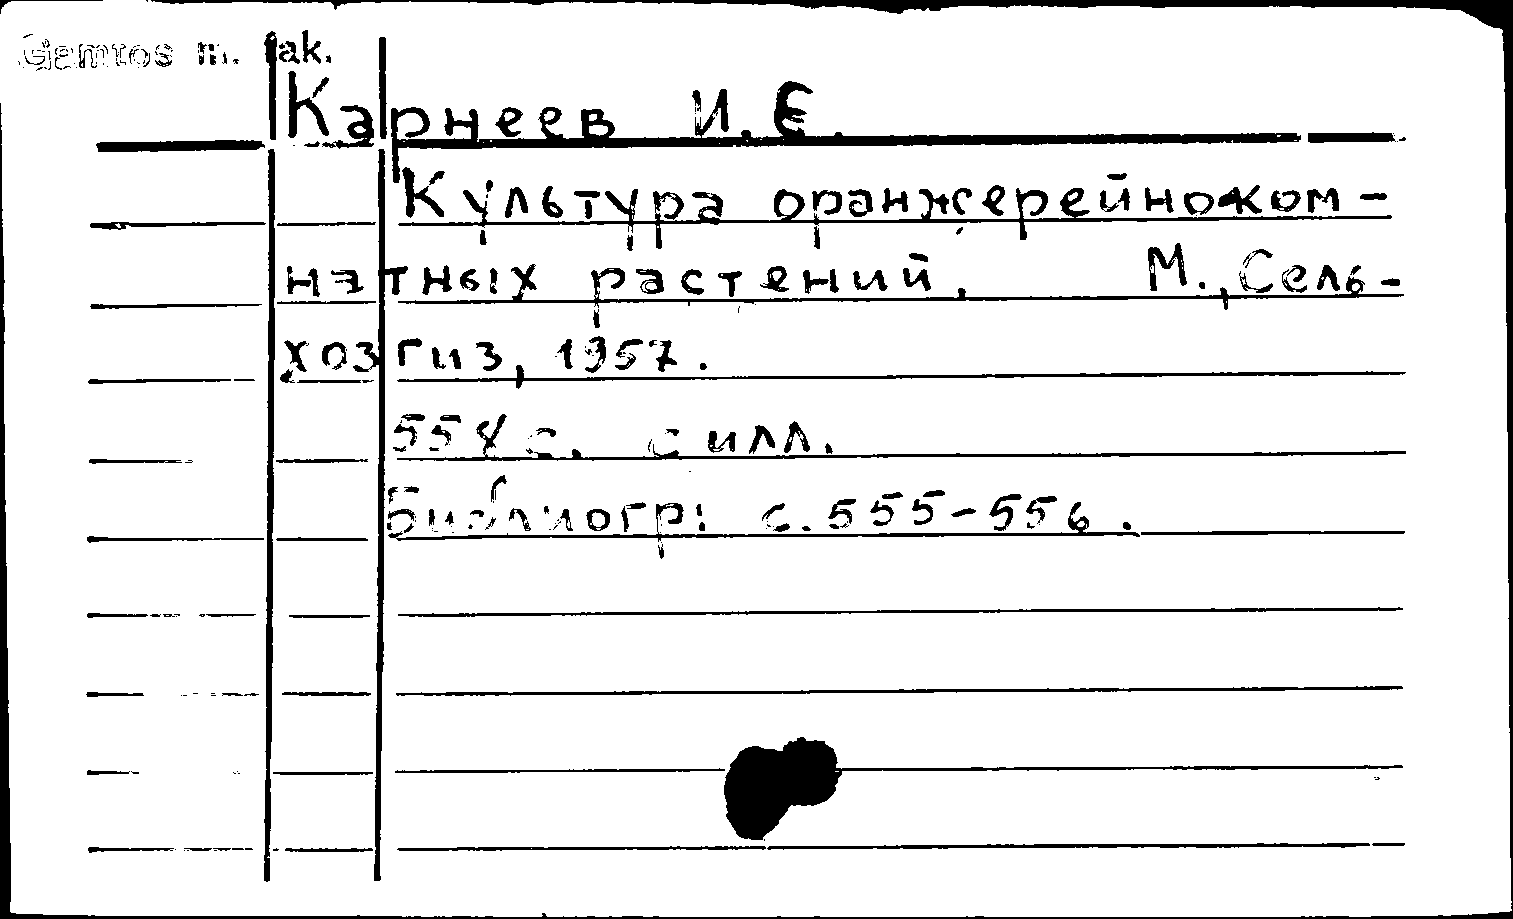 Gamtos m. fak.
Карнеев И.Е.
Культура оранжерейноком-
натных растений. М., Сель-
хозгиз, 1957.
558 с. с илл.
Библиогр: с. 555-556.